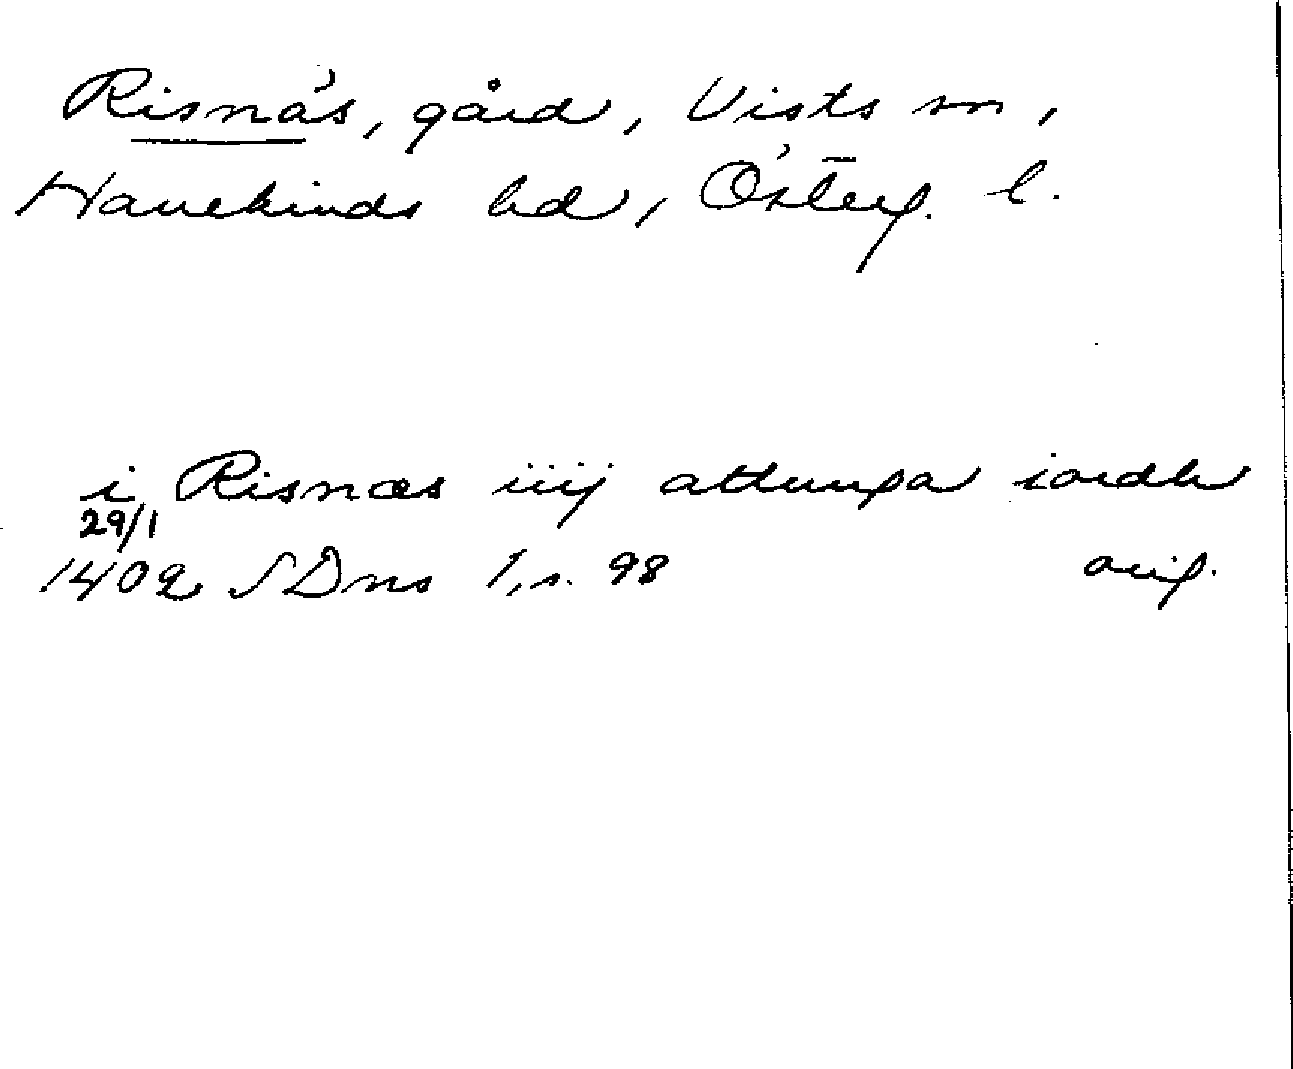 Risnäs, gård, Vists sn,
Hanekinds hd, Österg. l.
i Risnæs iiij attunga iordh
29/1
1402 SDns 1, s. 98 orig.